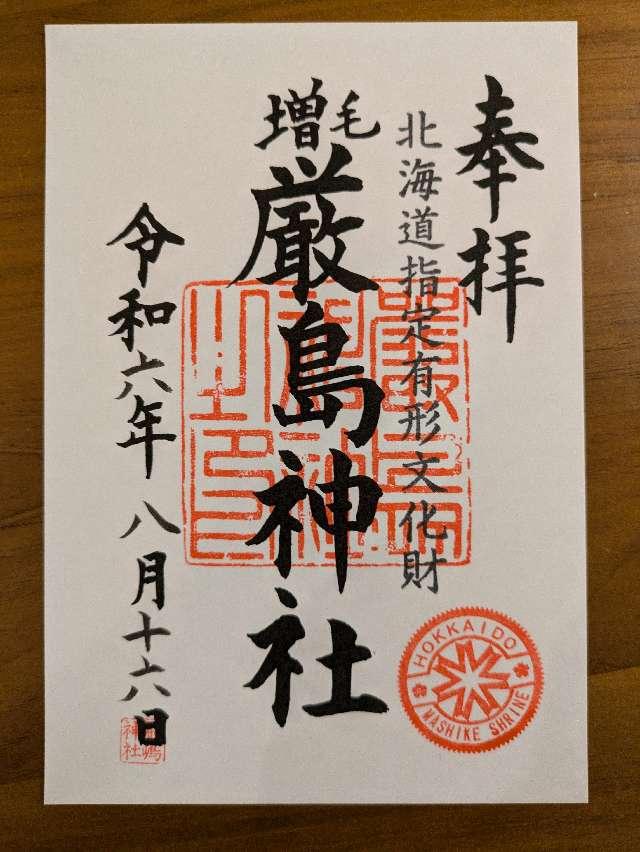 奉拝
北海道指定有形文化財
増毛
厳島神社
令和六年 八月十六日
HOKKAIDO
MASHIKE SHRINE